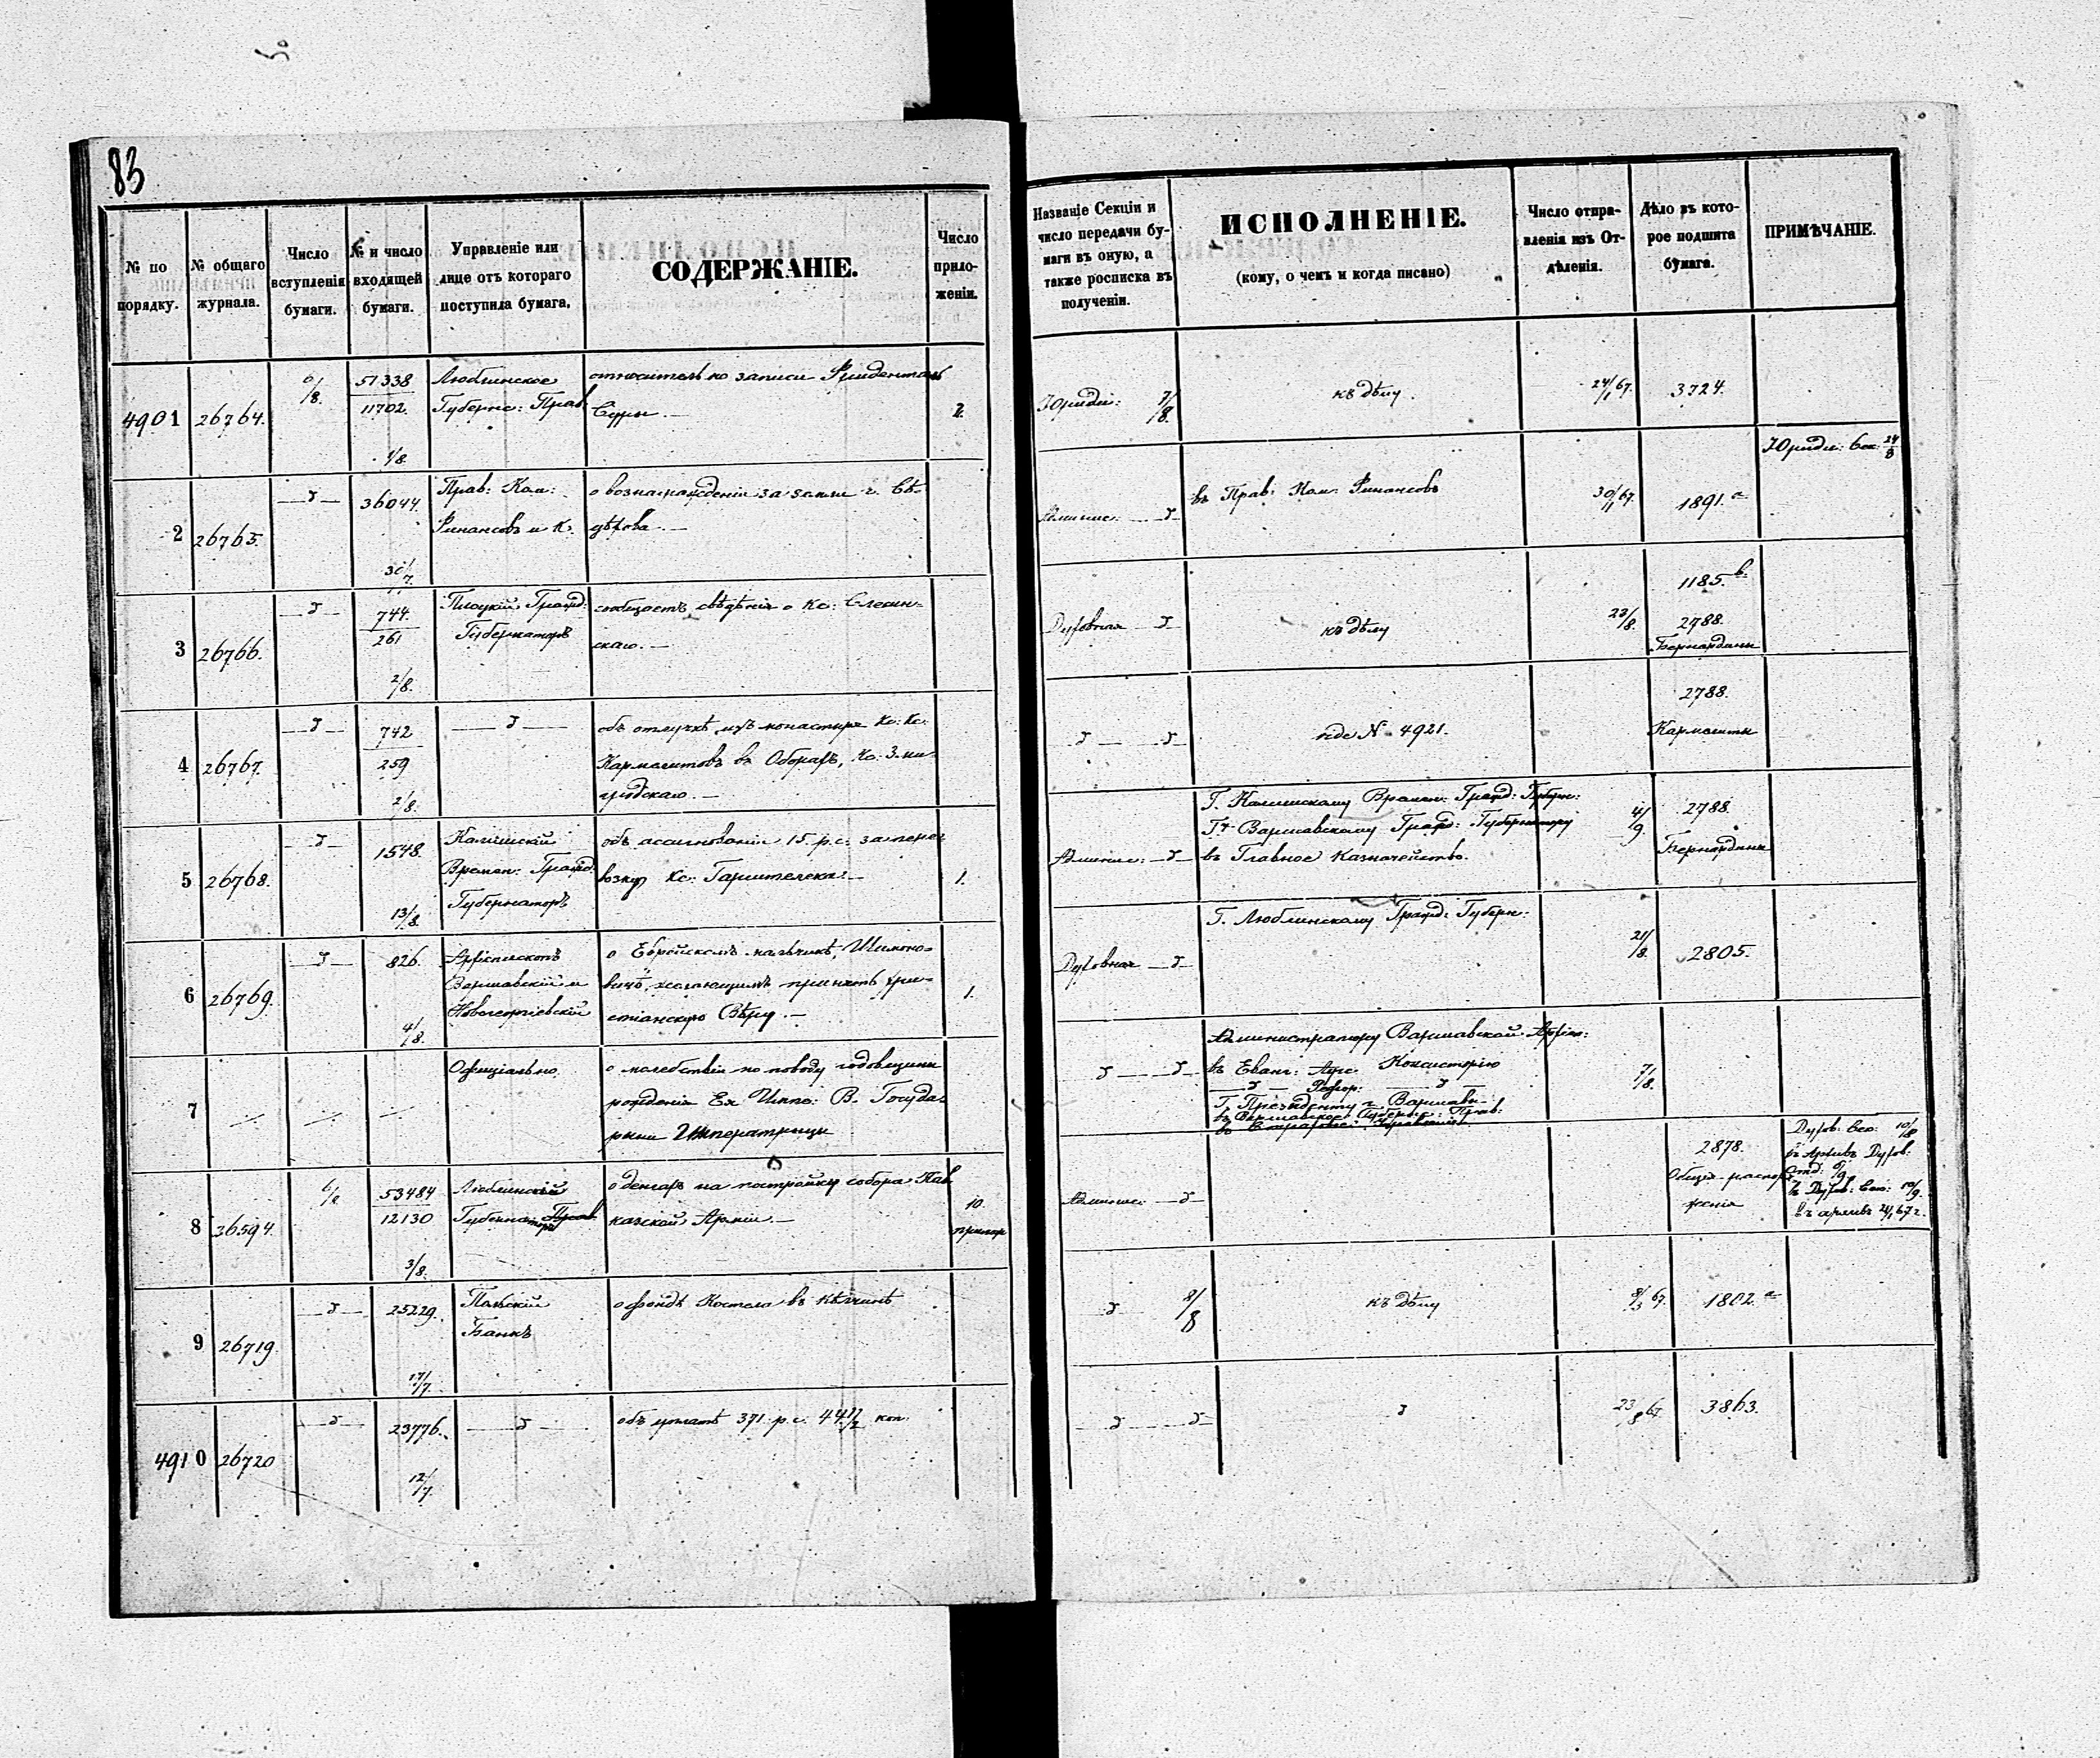 83
№ по порядку.
№ общаго журнала.
Число вступленія бумаги.
№ и число входящей бумаги.
Управленіе или лице отъ котораго поступила бумага.
СОДЕРЖАНІЕ.
Число прило- женіи.
Названіе Секціи и число передачи бу- маги въ оную, а также росписка въ полученіи.
ИСПОЛНЕНІЕ.
(кому, о чемъ и когда писано)
Число отпра- вленія изъ От- дѣленія.
Дѣло въ кото- рое подшита бумага.
ПРИМѢЧАНІЕ.
4901 26764. 6/8. 51338 11702. 1/8.
Люблинское
Губернс: Прав:
относительно записи
2.
Юриди: 7/8.
къ дѣлу.
24/1 67.
3724.
2 26765. 36044. 30/7.
Прав: Ком:
Финансовъ и К.
о вознагражденіи за земли г.
Админис:
въ Прав: Ком: Финансовъ
30/11 67.
1891.а
Юриди: Сек: 24/8
3 26766. 744. 261 2/8.
Плоцкій Гражд:
Губернаторъ
сообщаетъ свѣдѣнія о Кс:
скаго.
Духовная
къ дѣлу
23/8.
1185.в.
2788.
Бернардины
4 26767. 742 259 2/8.
объ отлучкѣ изъ монастыря Кс: Кс:
Кармелитовъ въ Оборахъ, Кс:
vide № 4921.
2788.
Кармелиты
5 26768. 1548. 13/8.
Калишскій
Времен: Гражд:
Губернаторъ
объ ассигнованіи 15 р. с. за пере-
возку Кс:
1.
Админис:
Г. Калишскому Времен: Гражд: Губерн:
Г. Варшавскому Гражд: Губернатору
въ Главное Казначейство.
4/9
2788.
Бернардины
6 26769. 826. 4/8.
Архіепископъ
Варшавскій и
Новогеоргіевскій
о Еврейскомъ мальчикѣ, Шимоно-
вичѣ, желающимъ принять хри-
стіанскую Вѣру.
1.
Духовная
Г. Люблинскому Гражд: Губерн:
21/8.
2805.
7
Офиціально.
о молебствіи по поводу годовщины
рожденія Ея Импе: В. Госуда-
рыни Императрицы
Администратору Варшавской Архіеп:
въ Еванг: Аугс: Консисторію
Рефор:
Г. Президенту г. Варшавы
въ Варшавское Губернс: Прав:
7/8.
8 36594. 6/8 53484 12130 3/8.
Люблинскій
Губернаторъ
о деньгахъ на постройку собора Кав-
казской Арміи.
10.
Админис:
2878.
Общія распоря-
женія
Духов: Сек: 10/8
въ Архивъ Духов:
Отд: 6/9
въ Духов: Сек: 10/9.
въ архивъ 24/1 67 г.
9 26719. 25229. 17/7.
Польскій
Банкъ
о фондѣ Костела въ
8/8
къ дѣлу
8/3 67.
1802.а
4910 26720 23776. 12/7.
объ уплатѣ 371 р. с. 44 1/2 коп.
23/8 67.
3863.